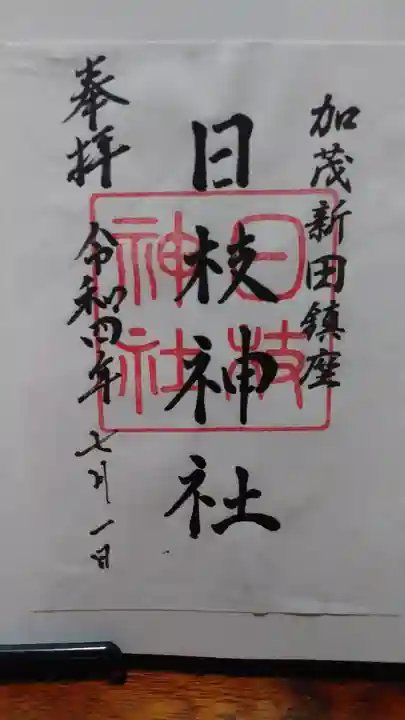 加茂新田鎮座
日枝神社
奉拝
令和四年
七月一日
日枝
神社